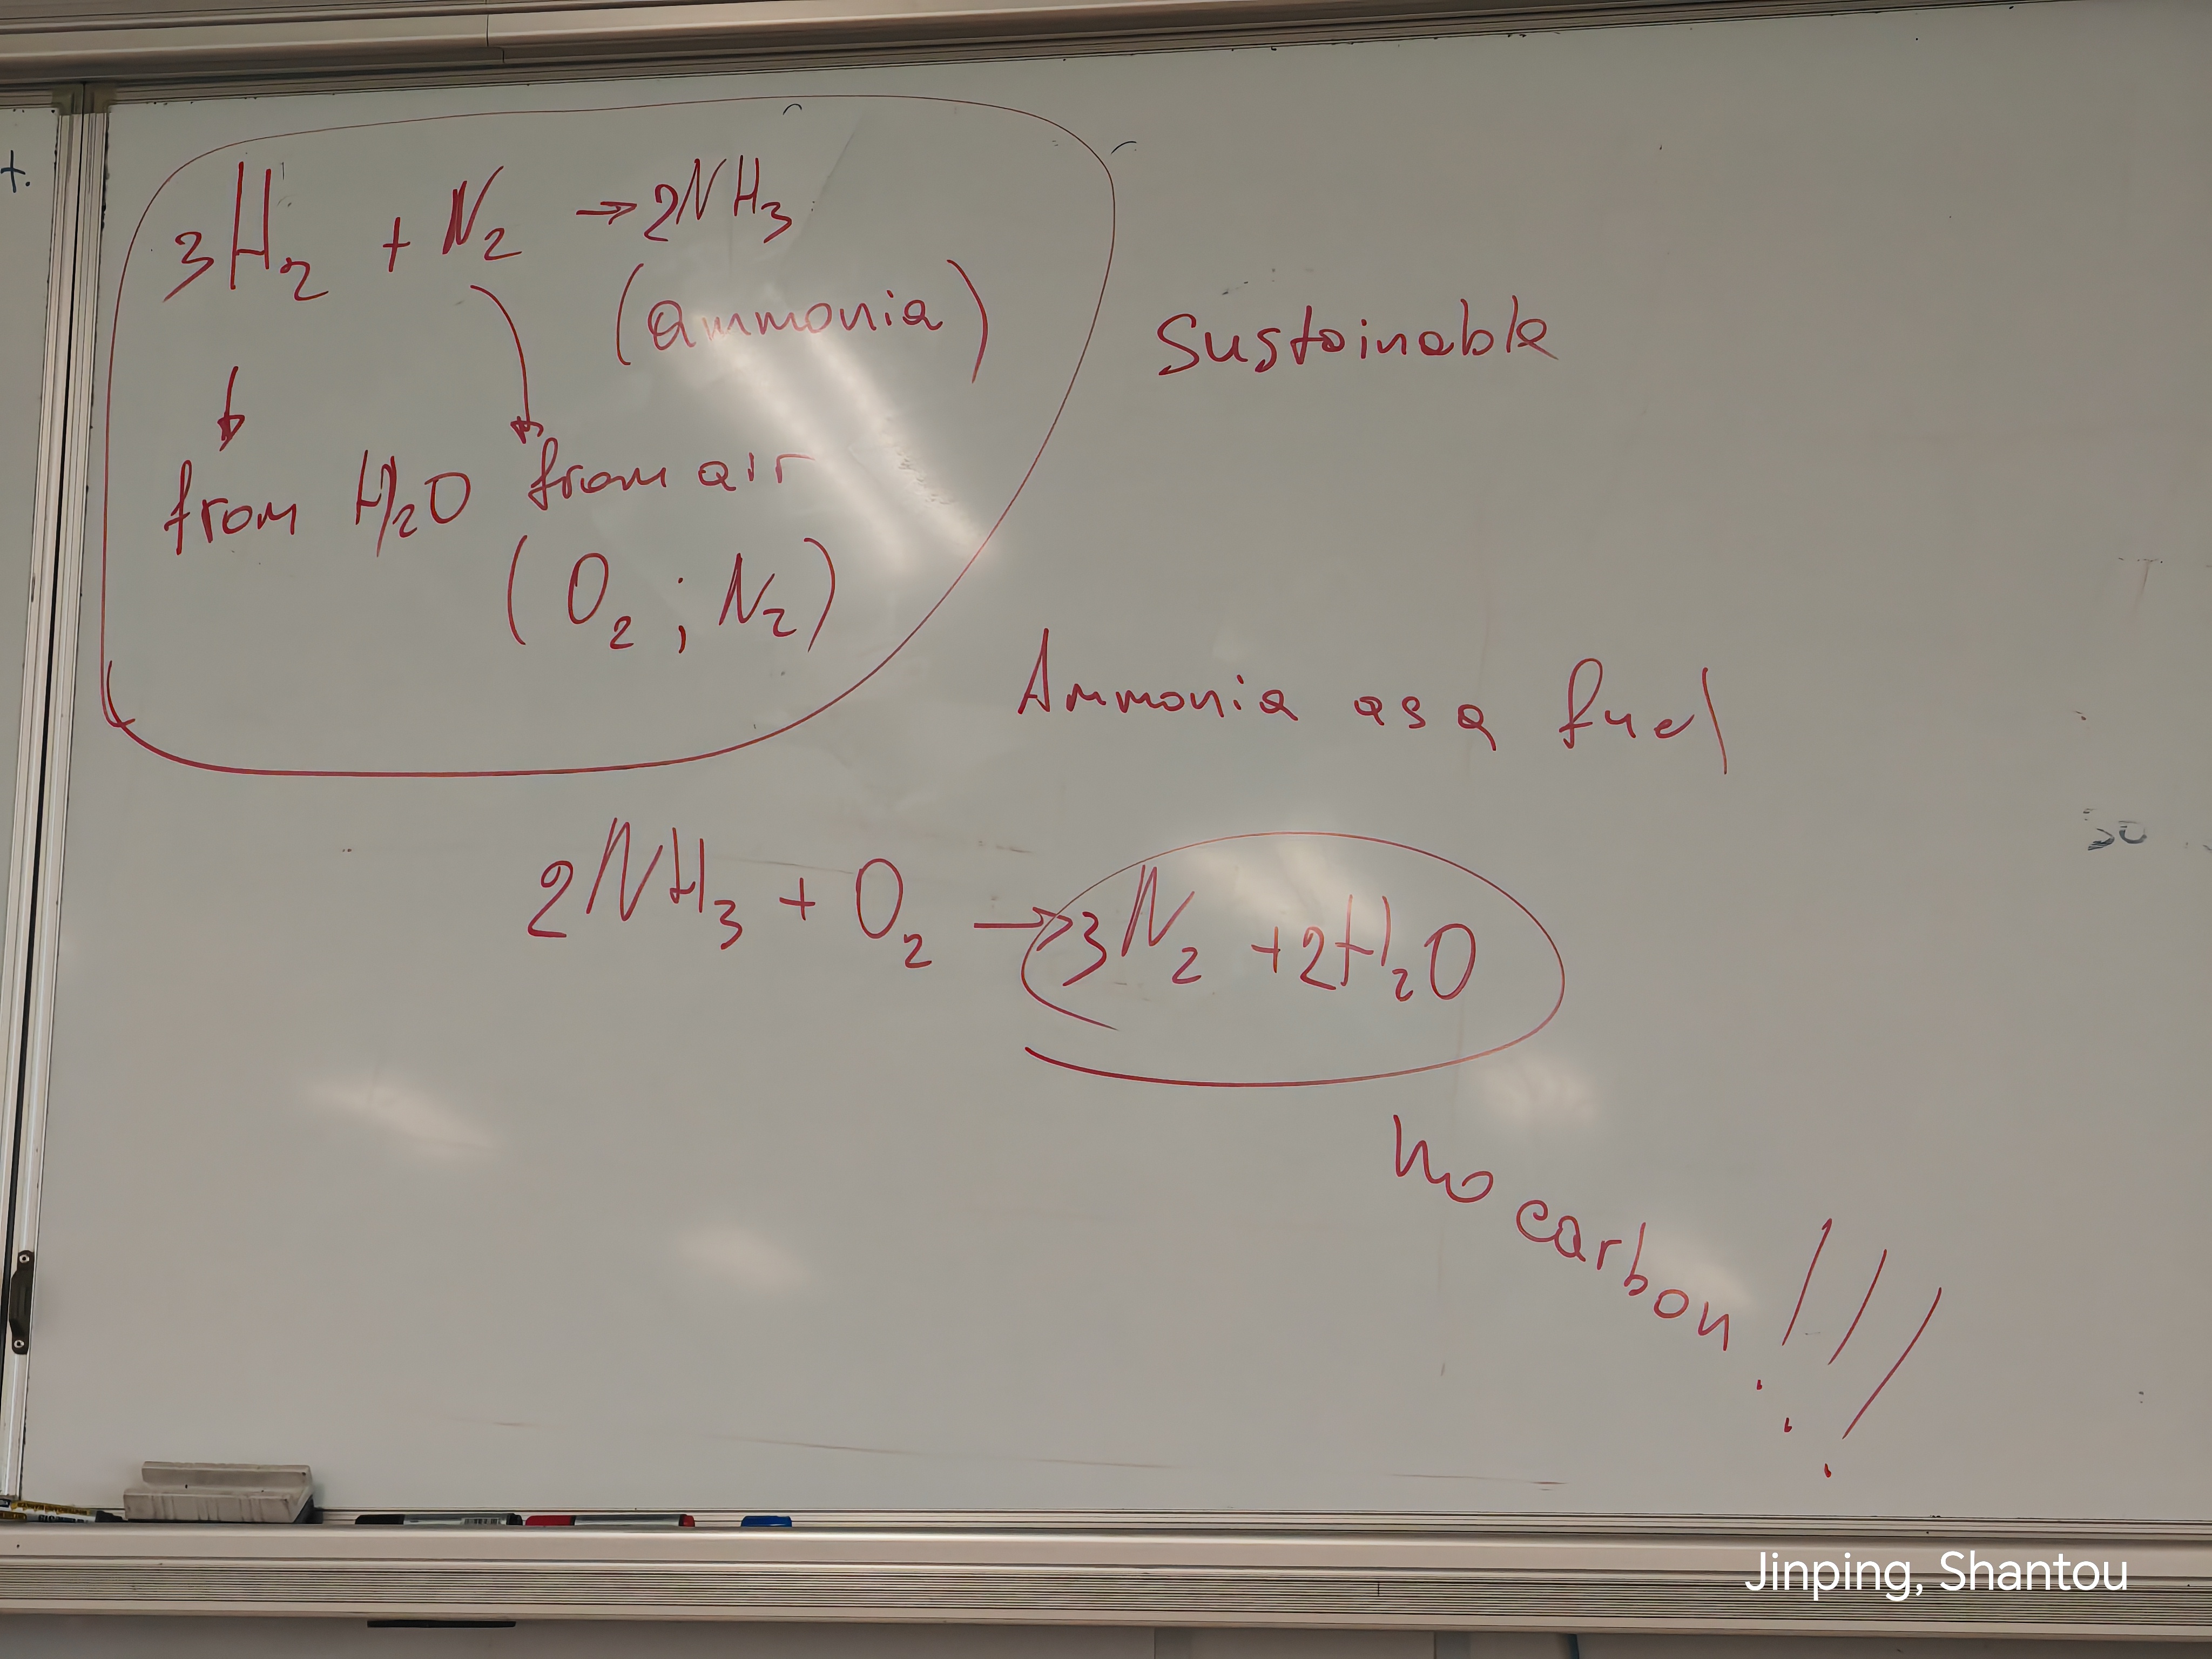 t.
3H₂ + N₂ → 2NH₃
(ammonia)
from H₂O from air
(O₂ ; N₂)
Sustainable
Ammonia as a fuel
2NH₃ + O₂ → 3N₂ + 2H₂O
no carbon !!!
Jinping, Shantou